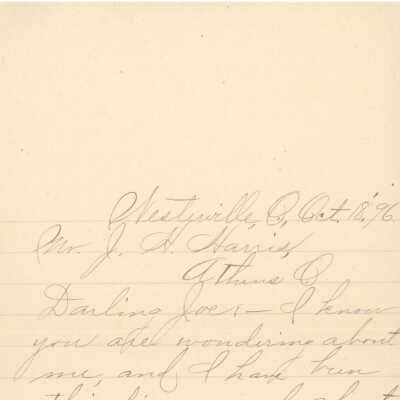 Westerville, O, Oct. 18, '96
Mr. J. H. Harris,
Athens O
Darling Joe:— I know
you are wondering about
me, and I have been